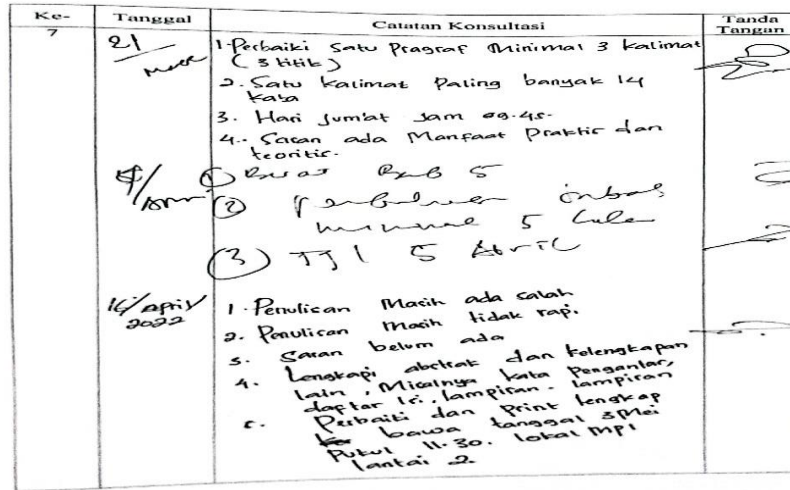 Ke-
Tanggal
Catatan Konsultasi
Tanda
Tangan
7
21
Maret
1. Perbaiki Satu Pragraf Minimal 3 kalimat
(3 titik)
2. Satu kalimat Paling banyak 14
kata
3. Hari Jum'at Jam 09.45.
4. Saran ada Manfaat Praktis dan
teoritis.
① Bab 5
②
minimal 5
③ Tgl 5 April
14/April
2022
1. Penulisan Masih ada salah
2. Penulisan Masih tidak rapi.
3. Saran belum ada
4. Lengkapi abstrak dan kelengkapan
lain, Misalnya kata Pengantar,
daftar isi, lampiran-lampiran
5. Perbaiki dan Print lengkap
bawa tanggal 3 Mei
Pukul 11.30. lokal MPI
lantai 2.